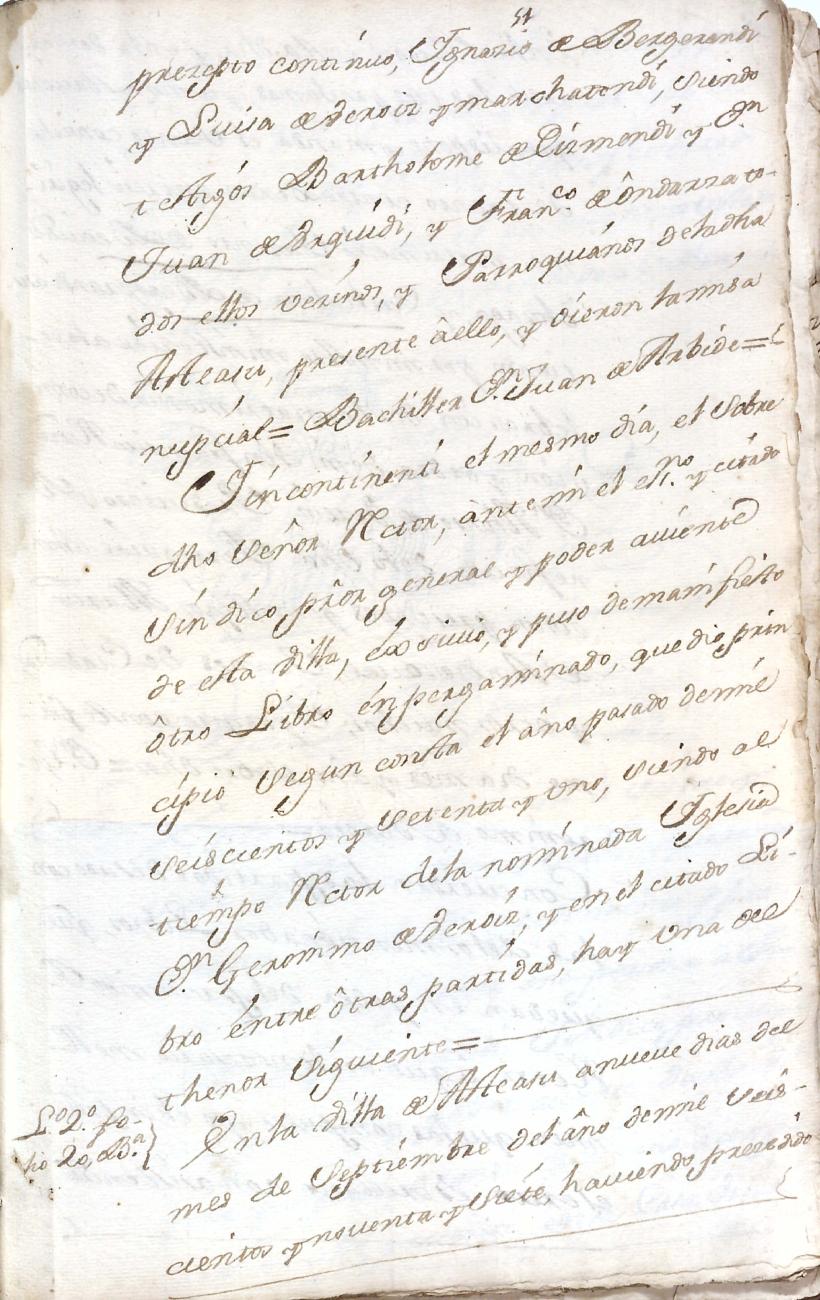 51
prezepto continuo, Ignazio de Bergerandi
y Luisa de Veroiz y marchatendi, siendo
testigos Bartholome de Eizmendi y Dn
Juan de Urquidi, y Franco. de Ondarza to-
dos ellos vezinos, y Parroquianos de la dha
Asteasu, presente â ello, y dieron la misa
nupcial = Bachiller Dn. Juan de Arbide =
Y incontinenti el mesmo dia, el sobre
dho Señor Rector, ante mi el esno. y citado
Sindico prôr general y poder aviente
de esta Villa, exsivio, y puso de manifiesto
ôtro Libro énpergaminado, que dio prin
cipio segun consta el año pasado de mil
seiscientos y setenta y uno, siendo al
tiempo Rector de la nominada Iglesia
Dn. Geronimo de Veroiz, y en el citado Li-
bro éntre ôtras partidas, hay una del
thenor siguiente =
Lo. 2o. fo-
lio 20, Ba.
En la Villa de Asteasu a nueve dias del
mes de Septiembre del año de mil seis-
cientos y noventa y siete, haviendo prezedido